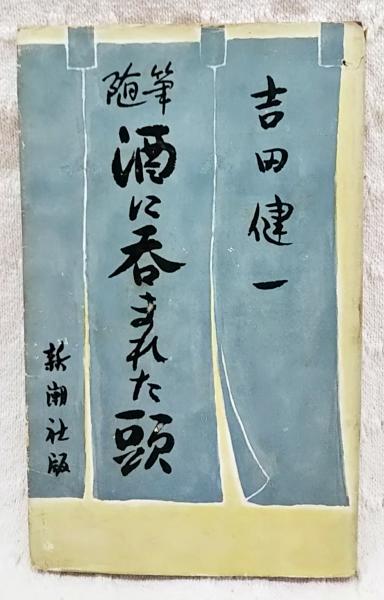 吉田健一
随筆
酒に呑まれた頭
新潮社版